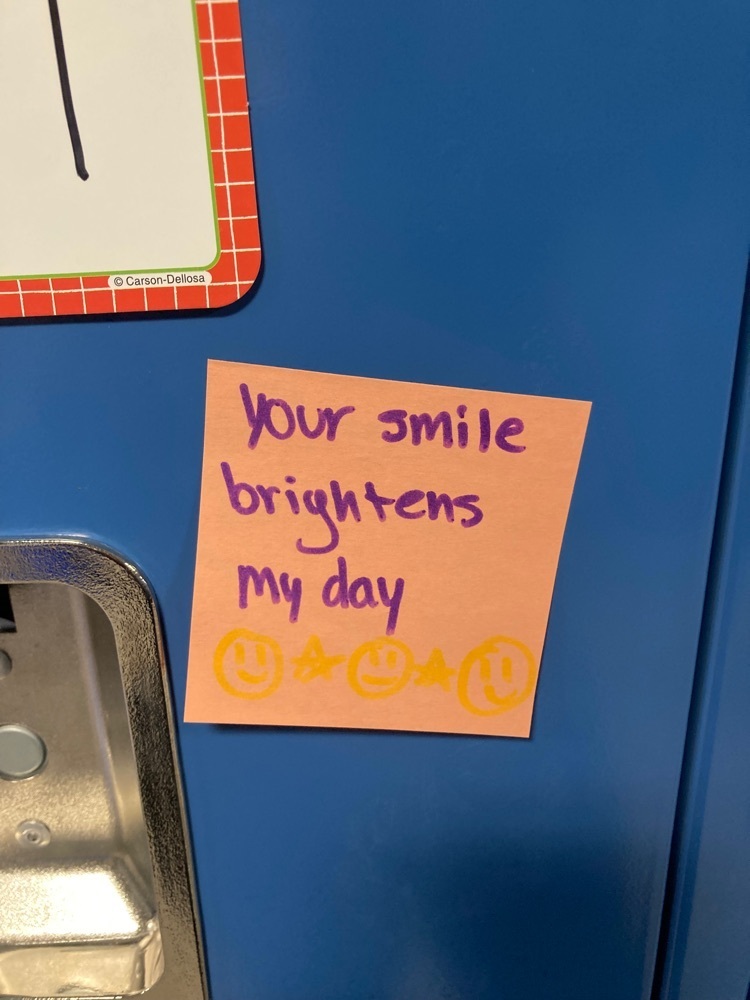 © Carson-Dellosa
your smile
brightens
my day